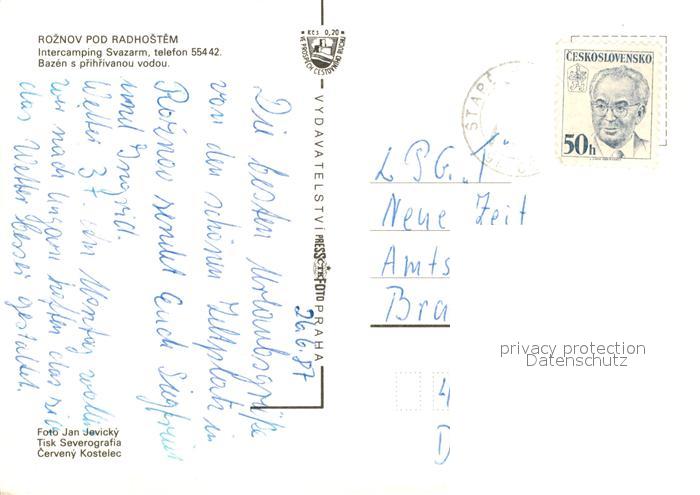 ROŽNOV POD RADHOŠTĚM
Intercamping Svazarm, telefon 554 42.
Bazén s přihřívanou vodou.
Kčs 0,20
VE PROSPĚCH CESTOVNÍHO RUCHU
VYDAVATELSTVÍ PRESSFOTO PRAHA
ČTK
ČESKOSLOVENSKO
50h
26.6.87
Die besten Urlaubsgrüße
von den schönen Zeltplatz in
Rožnov sendet Euch Siegfried
und Ingrid.
Wetter 37. Am Montag wollen
wir nach Ungarn hoffen das sich
das Wetter besser gestaltet.
LPG „
Neue Zeit
Amts
Bra
4
D
privacy protection
Datenschutz
Foto Jan Jevický
Tisk Severografia
Červený Kostelec